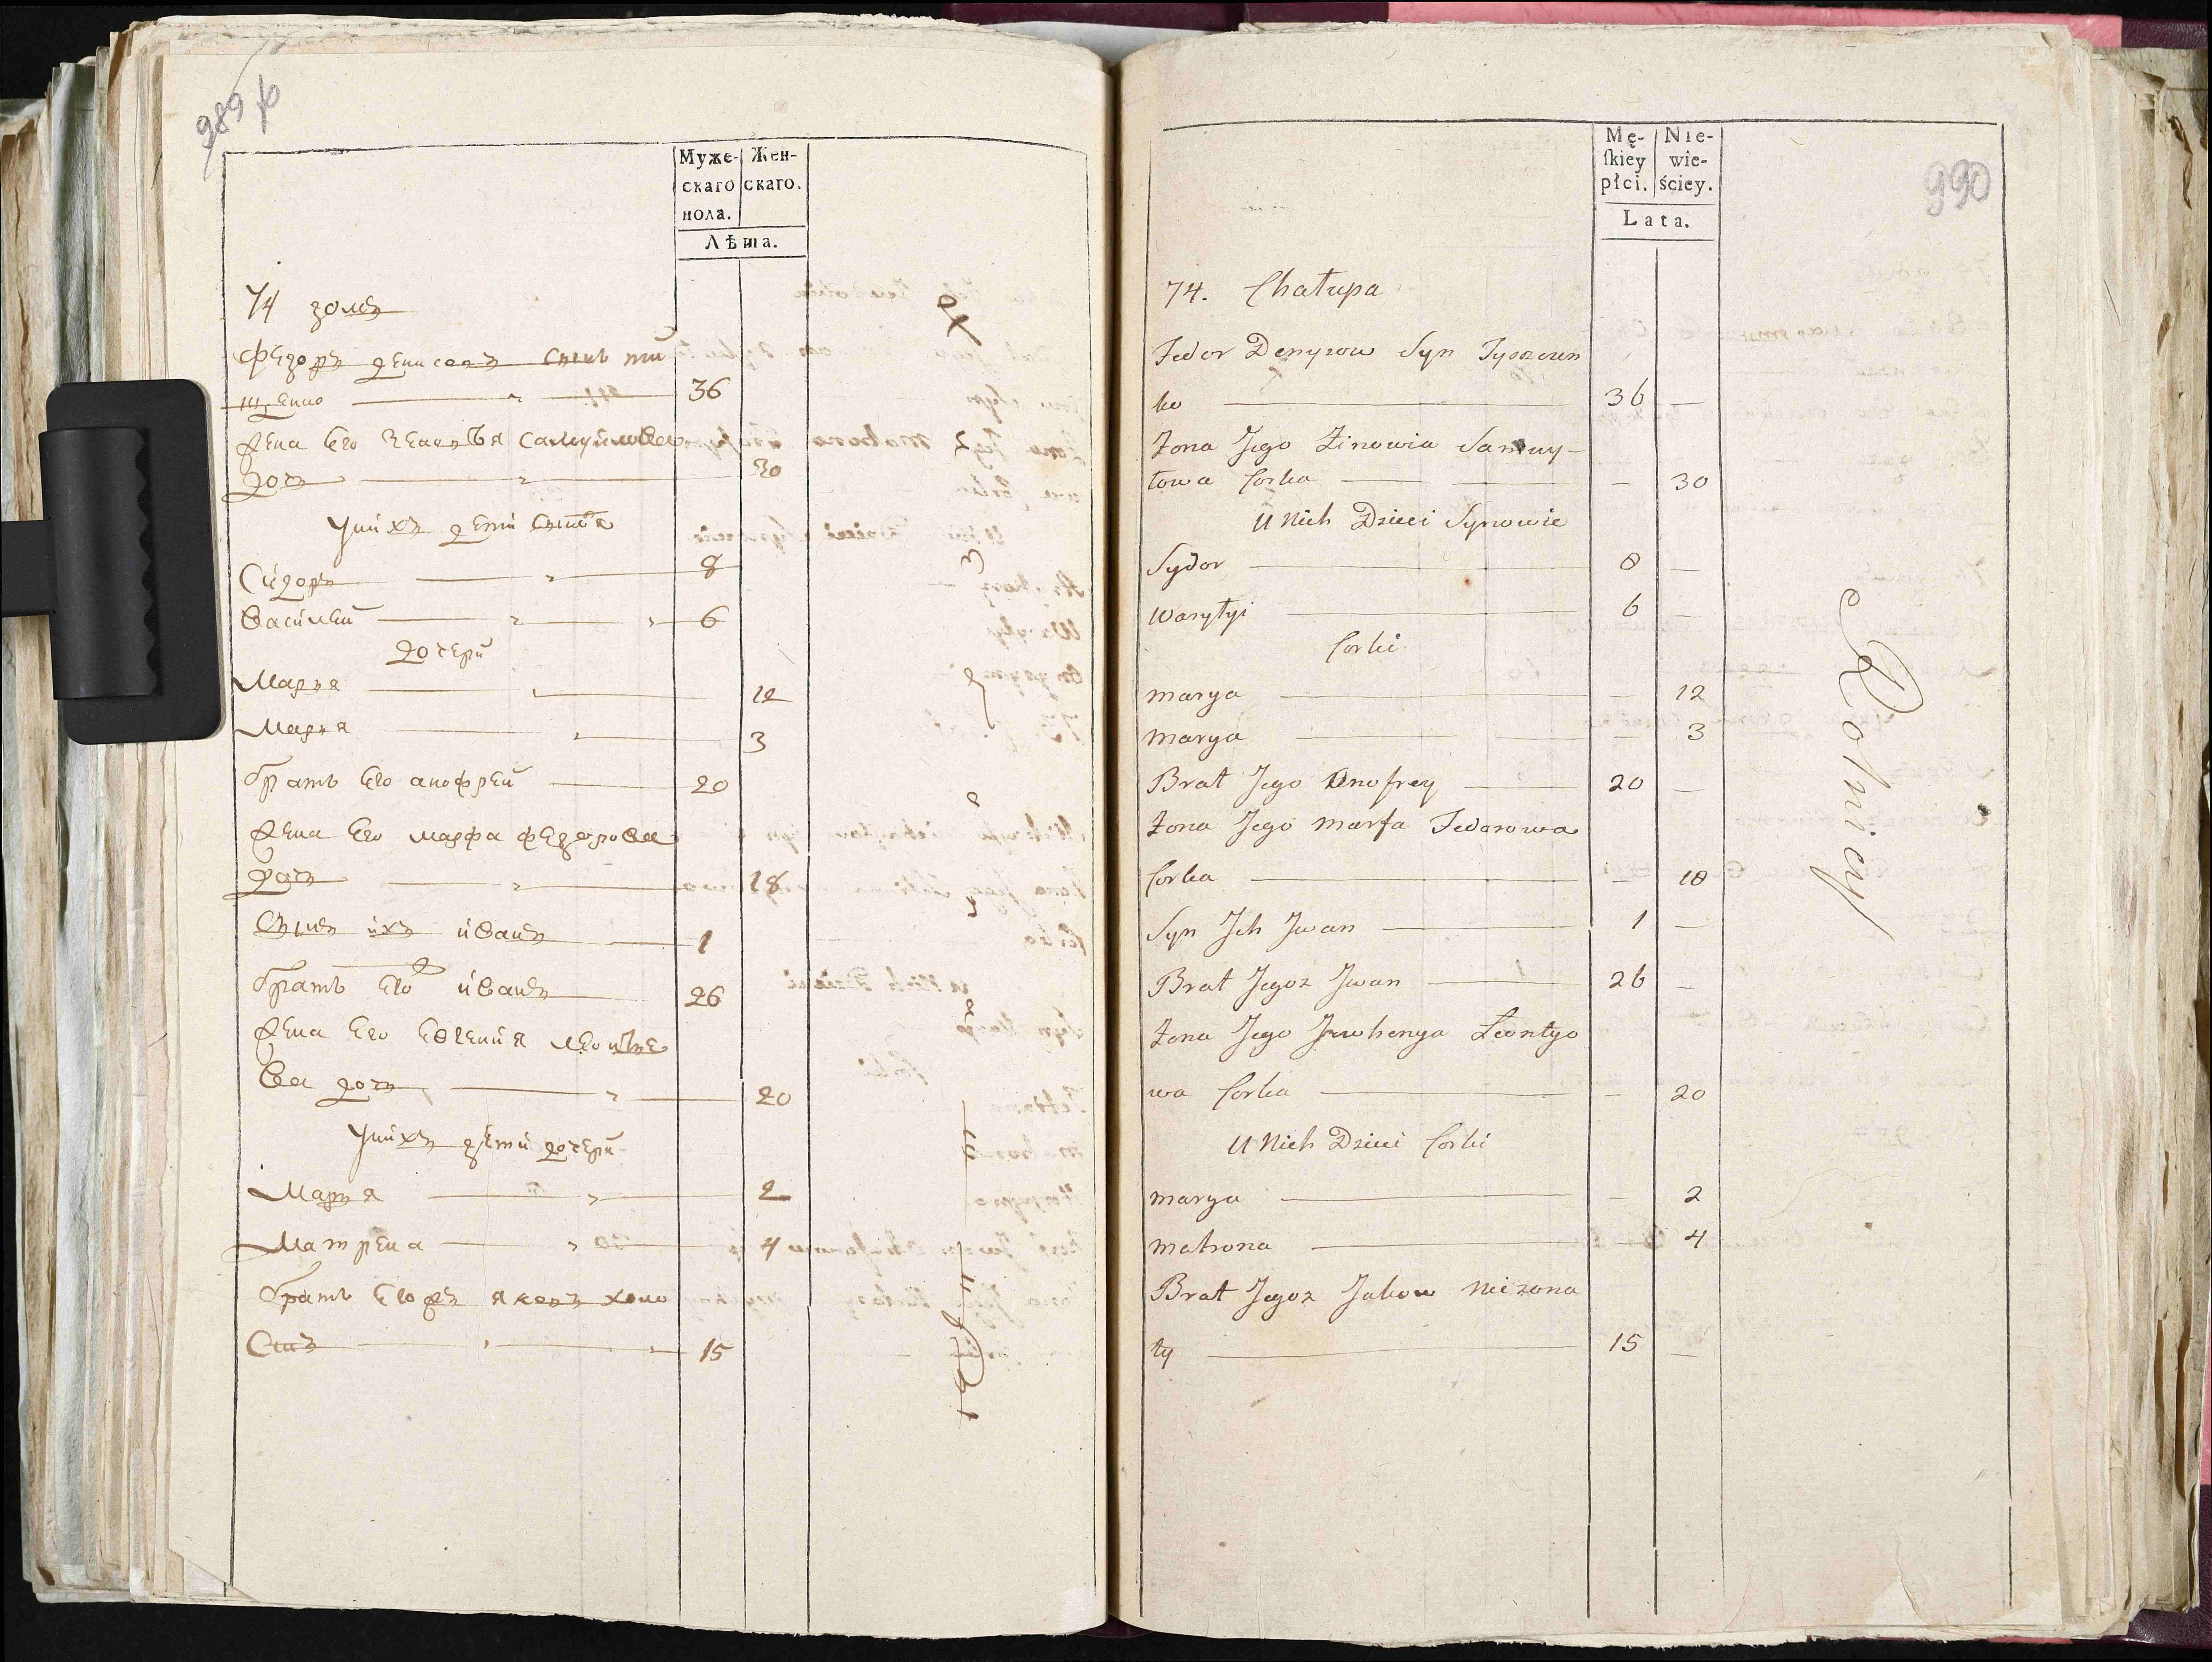 989 об
Муже- Жен-
скаго скаго.
пола.
Лѣта.
74 домъ
Федоръ денисовъ сынъ ти
щенко 36
Жена Его Зеновья Самуйлова
дочь 30
Уних дети сыновя
Сидоръ 8
Василей 6
дочери
Марья 12
Марья 3
братъ Его анофрей 20
Жена Его марфа федорова
дочь 18
Сынъ ихъ иванъ 1
братъ Его иванъ 26
Жена Его Евгения леонтье
ва дочь 20
Унихъ дети дочери
Марья 2
Матрена 4
братъ Егожъ яковъ холо
стъ 15
990
Mę- Nie-
ſkiey wie-
płci. ściey.
Lata.
74. Chałupa
Fedor Denysow Syn Tyszczen
ko 36 —
Żona Jego Zinowia Samuy-
łowa Corka — 30
U Nich Dzieci Synowie
Sydor 8 —
Wasyłyi 6 —
Corki
Marya — 12
Marya — 3
Brat Jego Onofrey 20 —
Żona Jego Marfa Fedorowa
Corka — 18
Syn Ich Jwan 1 —
Brat Jegoz Jwan 26 —
Żona Jego Jewhenya Leontyo
wa Corka — 20
U Nich Dzieci Corki
Marya — 2
Matrona — 4
Brat Jegoz Jakow Niezona
ty 15 —
Rolniczy